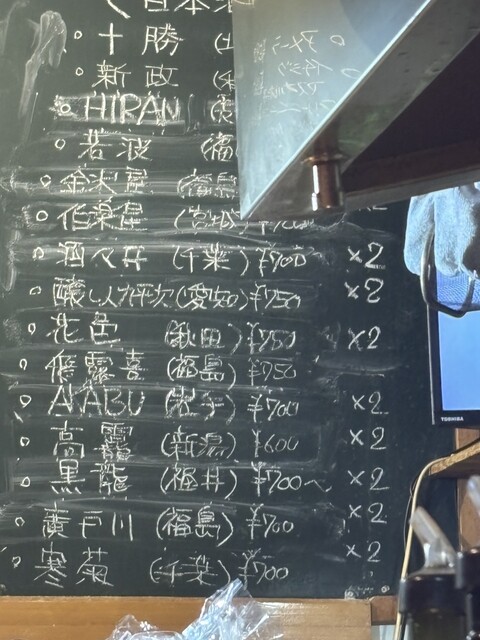 日本酒
○ 十勝
○ 新政
○ HIRAN
○ 若波 (福
○ 金水晶 (福島
○ 伯楽星 (宮城) ¥700
○ 酒々井 (千葉) ¥700 ×2
○ 醸し人九平次 (愛知) ¥750 ×2
○ 花邑 (秋田) ¥750 ×2
○ 飛露喜 (福島) ¥750
○ AKABU (岩手) ¥700 ×2
○ 高龗 (新潟) ¥600 ×2
○ 黒龍 (福井) ¥700〜 ×2
○ 廣戸川 (福島) ¥700 ×2
○ 寒菊 (千葉) ¥700 ×2
TOSHIBA